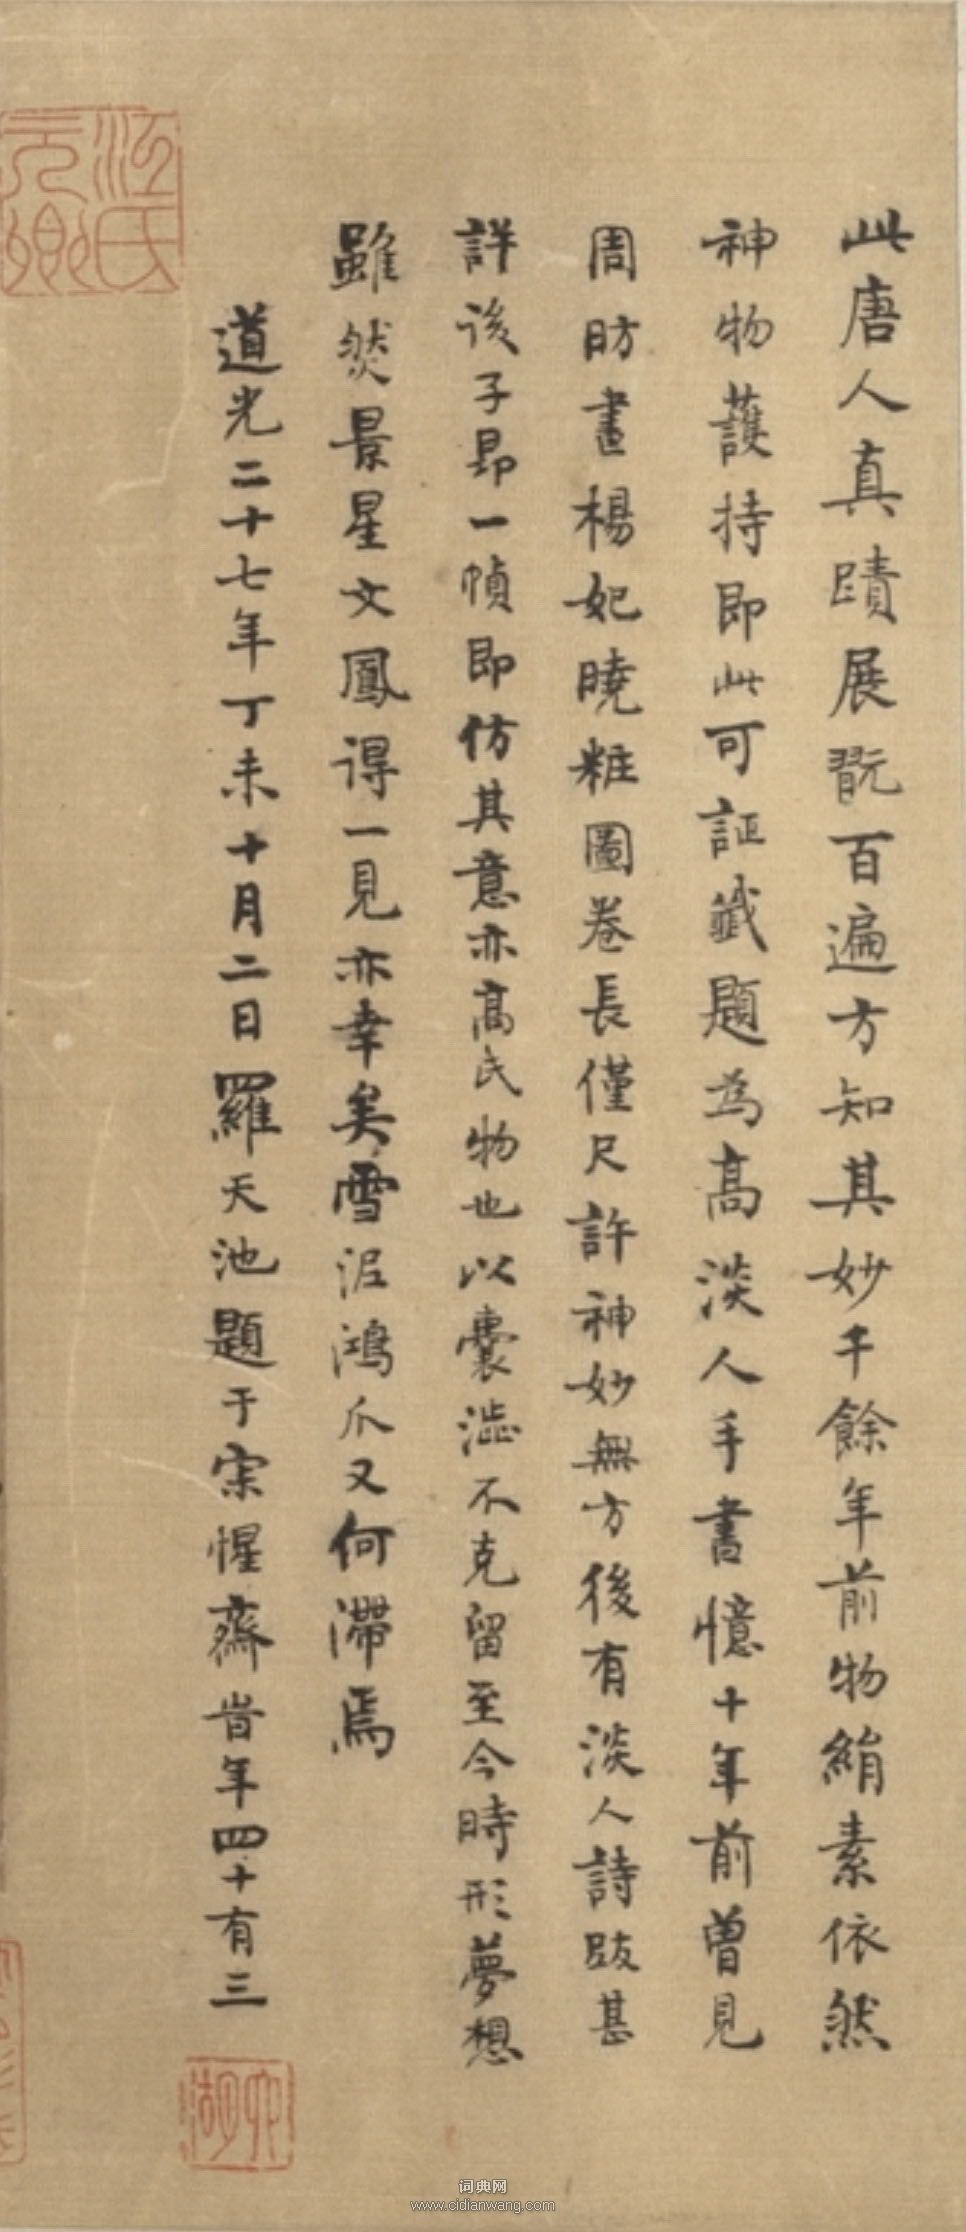 此唐人真蹟展翫百遍方知其妙千餘年前物絹素依然
神物護持即此可証籤題為高淡人手書憶十年前曾見
周昉畫楊妃曉粧圖卷長僅尺許神妙無方後有淡人詩跋甚
詳後子昂一幀即仿其意亦高氏物也以囊澁不克留至今時形夢想
雖然景星文鳳得一見亦幸矣雪泥鴻爪又何滯焉
道光二十七年丁未十月二日羅天池題于宗惺齋旹年四十有三
六湖
汪氏元卿
词典网
www.cidianwang.com